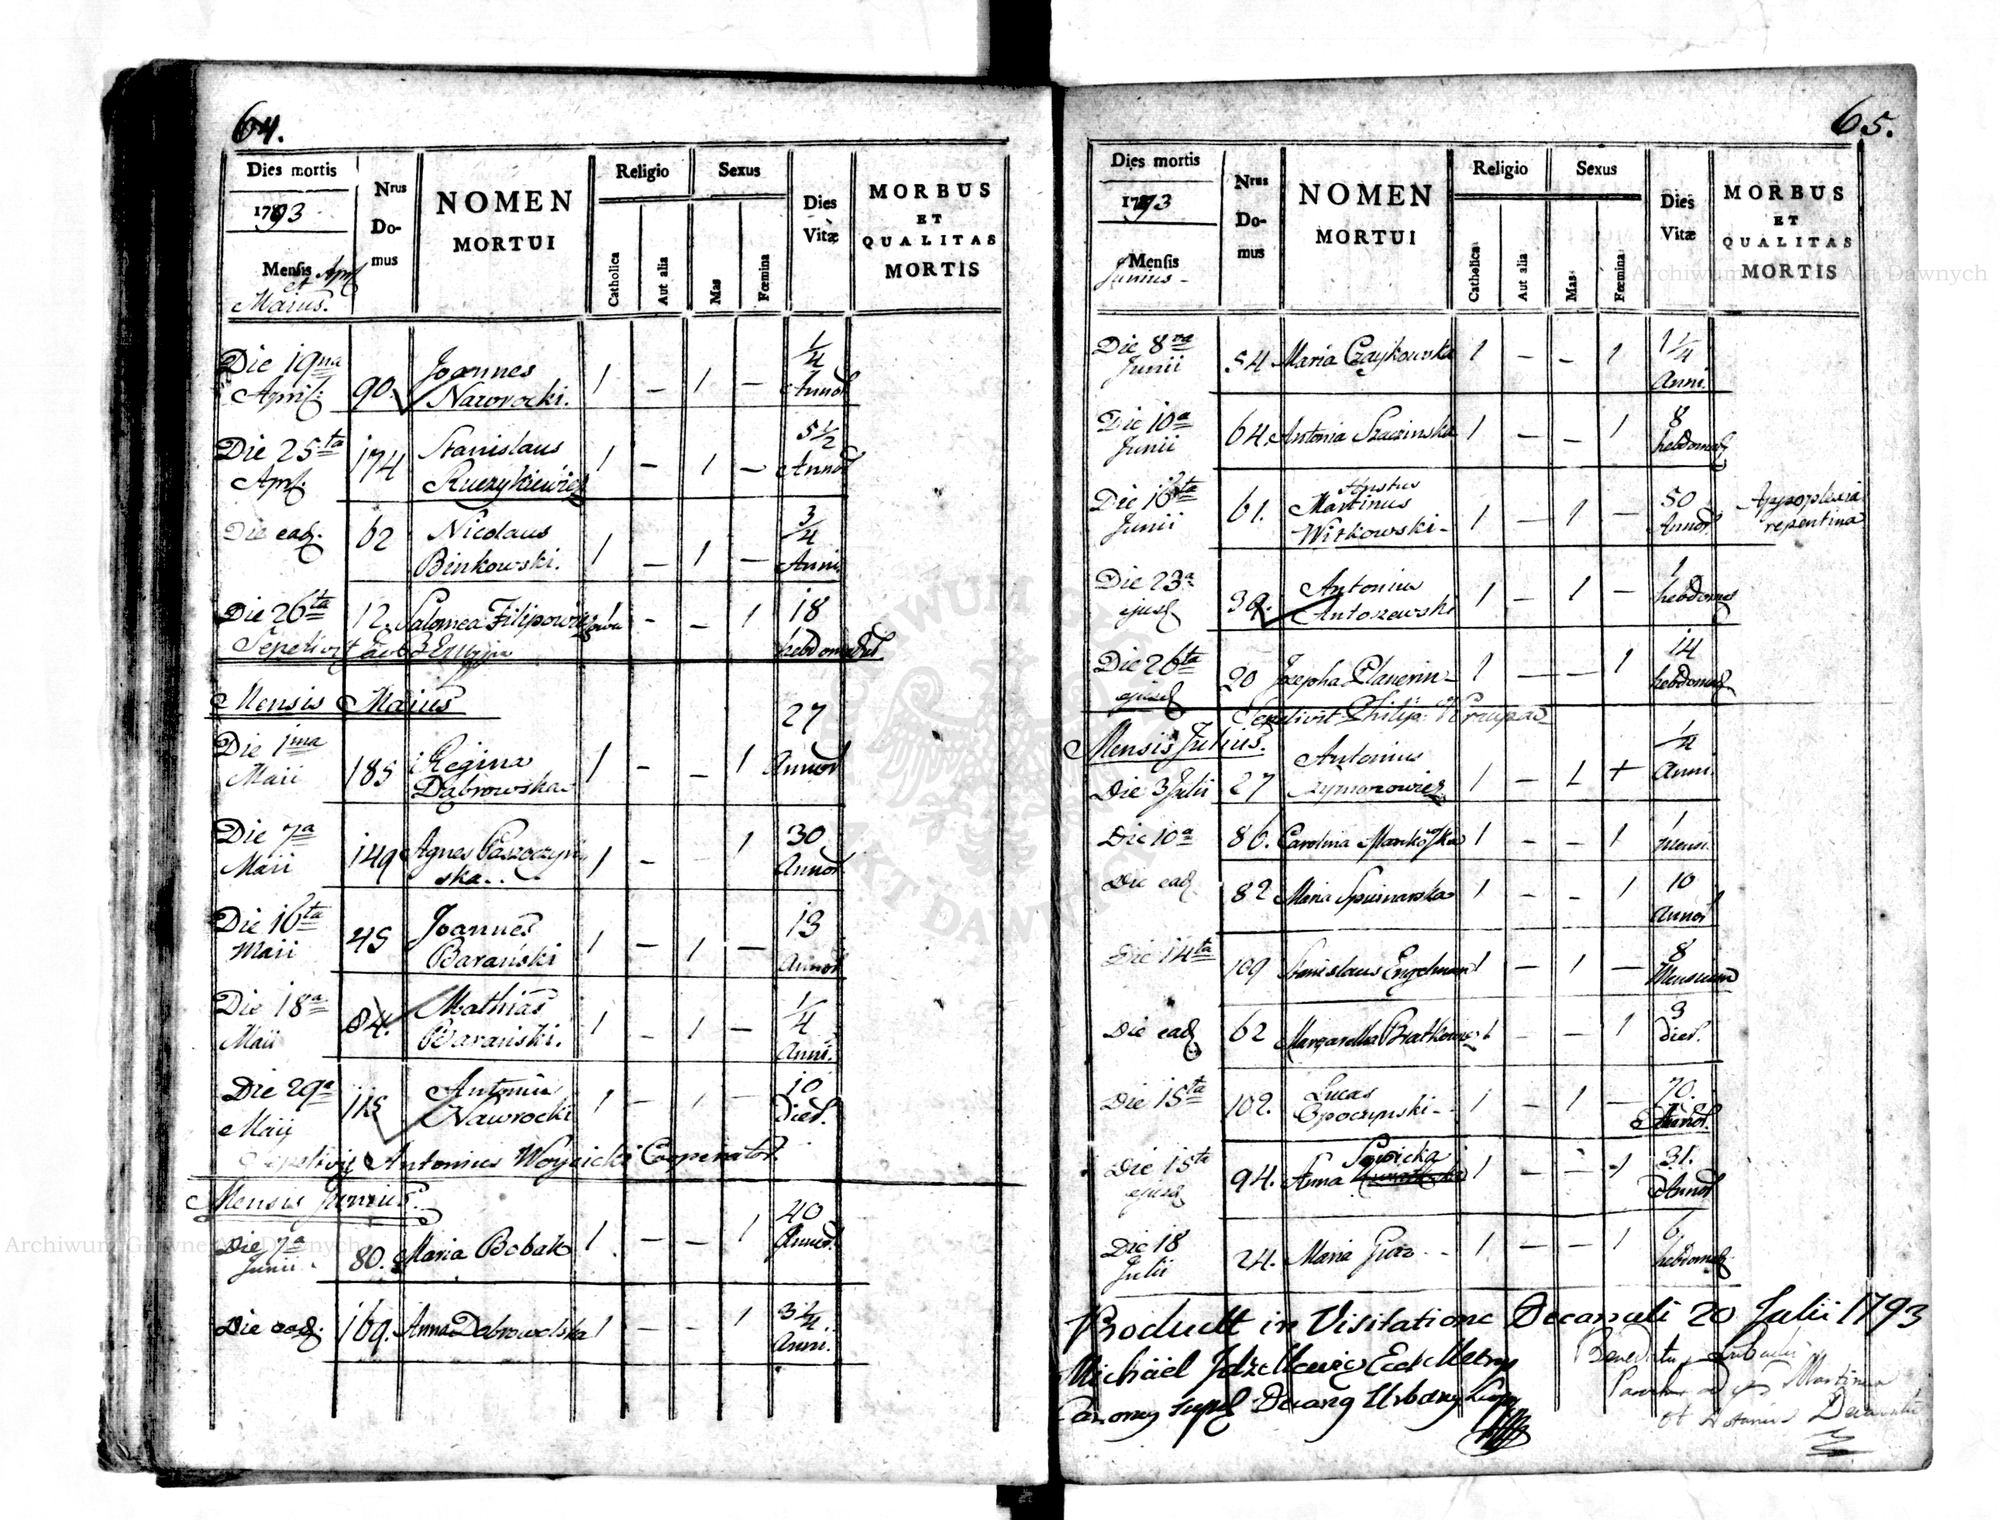 64.
Dies mortis
Nrus Domus
NOMEN MORTUI
Religio
Sexus
Catholica
Aut alia
Mas
Fœmina
Dies Vitæ
MORBUS ET QUALITAS MORTIS
1793
Mensis Apr
et
Maius.
Die 19na April: 90. Joannes Nawrocki. 1 – 1 – 1/4 Annor
Die 25ta Apr: 174 Stanislaus 1 – 1 – 5 1/2 Annor
Die ead. 62 Nicolaus Binkowski. 1 – 1 – 3/4 Anni.
Die 26ta 12. Salomea 1 – – 1 18 hebdomadar
Sepelivit
Mensis Maius
Die 1ma Maii 185 Regina Dąbrowska 1 – – 1 27 Annor
Die 7a Maii 149 Agnes 1 – 1 30 Annor
Die 16ta Maii 45 Joannes Barański 1 – 1 – 13 Annor
Die 18a Maii 84. Mathias Barański. 1 – 1 – 1/4 Anni.
Die 29a Maii 115 Antonius Nawrocki 1 – 1 – 10 Dier.
Sepelivit Antonius Woyicki Cooperator.
Mensis Junius.
Die 7a Junii 80. Maria Bobak 1 – – 1 40 Annor.
Die ead. 169. Anna Dobrowolska 1 – – 1 3 1/4 Anni.
65.
Dies mortis
Nrus Domus
NOMEN MORTUI
Religio
Sexus
Catholica
Aut alia
Mas
Fœmina
Dies Vitæ
MORBUS ET QUALITAS MORTIS
1793
Mensis
Junius
Die 8va Junii 54 Maria Czaykowska 1 – – 1 1 1/4 Anni.
Die 10a Junii 64. Antonia 1 – – 1 8 hebdomad
Die 16ta Junii 61. Martinus Witkowski 1 – 1 – 50 Annor. Appoplexia repentina
Die 23a ejusd 39. Antonius Antoszewski 1 – 1 – 1 hebdomas
Die 26ta ejusd 20 Josepha 1 – – 1 14 hebdomad
Sepelivit Philip:
Mensis Julius.
Die 3 Julii 27 Antonius Szymonowicz 1 – 1 + 1/4 Anni.
Die 10a 86. Carolina 1 – – 1 1 mensis
Die ead 82 Maria 1 – – 1 10 Annor
Die 14ta 109 Stanislaus Engelman 1 – 1 – 8 Mensium
Die ead 62 Margaretha 1 – – 1 3 Dier.
Die 15ta 102. Lucas Opoczynski 1 – 1 – 70. Annor.
Die 15ta ejusd 94. Anna Sowicka 1 – – 1 31. Annor
Die 18 Julii 24. Maria 1 – – 1 6 hebdomad
Product in Visitatione Decanali 20 Julii 1793
Michael
Martinum
et Notarius
Archiwum Główne Akt Dawnych
ARCHIWUM GŁÓWNE AKT DAWNYCH